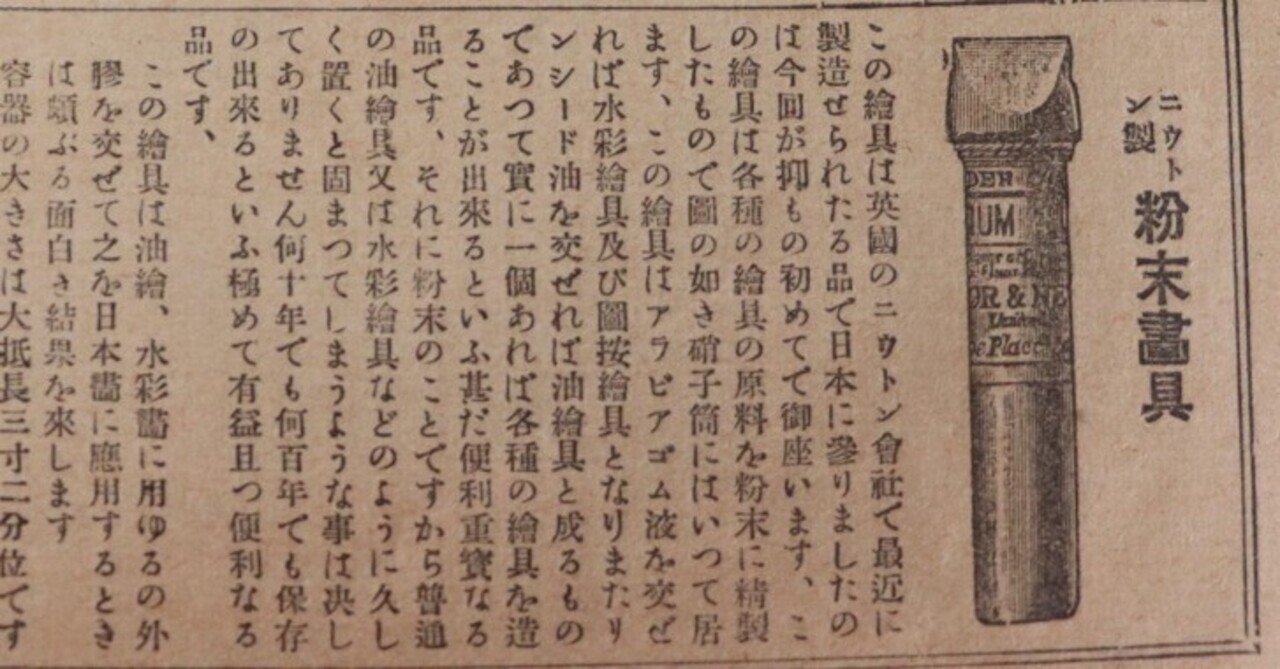 ニウトン製
粉末畵具
DER
IUM
OR & NE
Place
この繪具は英國のニウトン會社で最近に
製造せられたる品で日本に參りましたの
は今回が抑もの初めてで御座います、こ
の繪具は各種の繪具の原料を粉末に精製
したもので圖の如き硝子筒にはいつて居
ます、この繪具はアラビアゴム液を交ぜ
れば水彩繪具及び圖按繪具となりまたり
ンシード油を交ぜれば油繪具と成るもの
であつて實に一個あれば各種の繪具を造
ることが出來るといふ甚だ便利重寳なる
品です、それに粉末のことですから普通
の油繪具又は水彩繪具などのように久し
く置くと固まつてしまうような事は决し
てありません何十年でも何百年ても保存
の出來るといふ極めて有益且つ便利なる
品です、
この繪具は油繪、水彩畵に用ゆるの外
膠を交ぜて之を日本畵に應用するとき
は頗ぶる面白き結果を來します
容器の大きさは大抵長三寸二分位てす